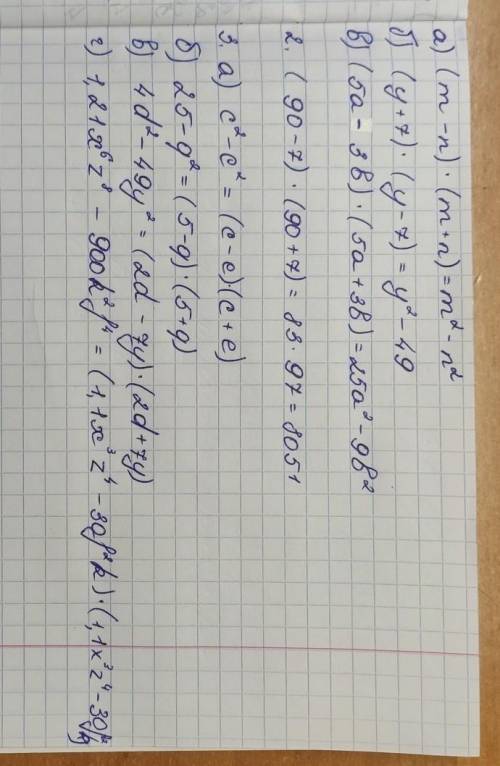 а) (m - n) · (m + n) = m² - n²
б) (y + 7) · (y - 7) = y² - 49
в) (5a - 3b) · (5a + 3b) = 25a² - 9b²
2. (90 - 7) · (90 + 7) = 83 · 97 = 8051
3. а) c² - c² = (c - e)(c + e)
б) 25 - q² = (5 - q) · (5 + q)
в) 4d² - 49y² = (2d - 7y) · (2d + 7y)
г) 1,21x⁶z⁸ - 900k²p⁴ = (1,1x³z⁴ - 30p²k) · (1,1x³z⁴ - 30p²k)